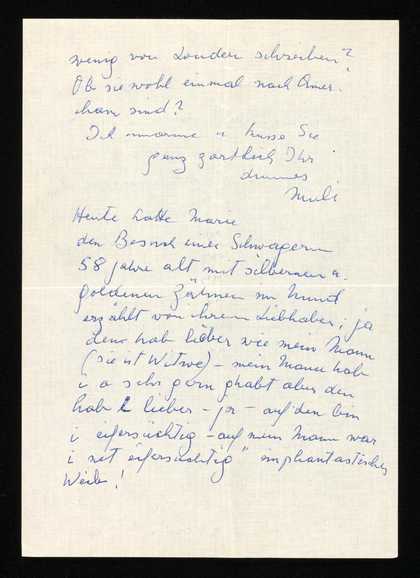 wenig von London schreiben?
Ob sie wohl einmal nach
sind?
Ich umarme u küsse Sie
ganz zärtlich Ihr
dummes
Muli
Heute hatte Marie
den Besuch einer Schwägerin
58 Jahre alt mit silbernen u.
goldenen Zähnen im Mund
erzählt von ihrem Liebhaber; ja
den hab lieber wie mein Mann
(sie ist Witwe) – mein Mann hab
i a sehr gern ghabt aber den
hab i lieber – ja – auf den bin
i eifersüchtig – auf mein Mann war
i net eifersüchtig" ein phantastisches
Weib!